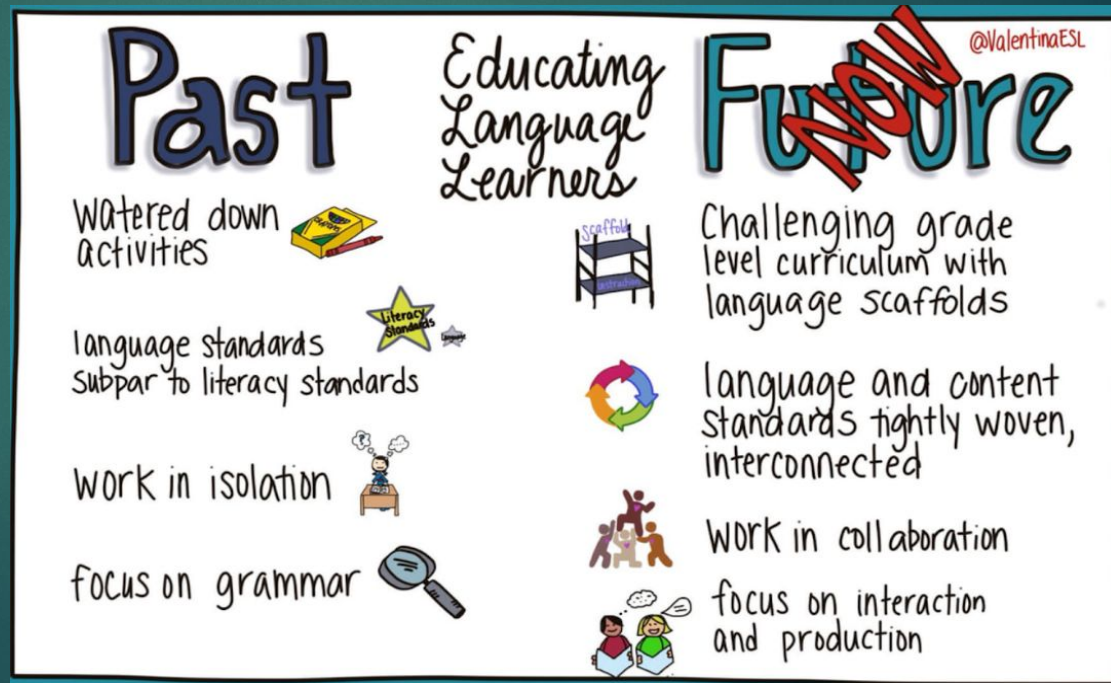 Past
Educating
Language
Learners
Future
NOW
@ValentinaESL
watered down
activities
language standards
subpar to literacy standards
Literacy
Standards
work in isolation
focus on grammar
scaffold
Challenging grade
level curriculum with
language scaffolds
language and content
standards tightly woven,
interconnected
work in collaboration
focus on interaction
and production